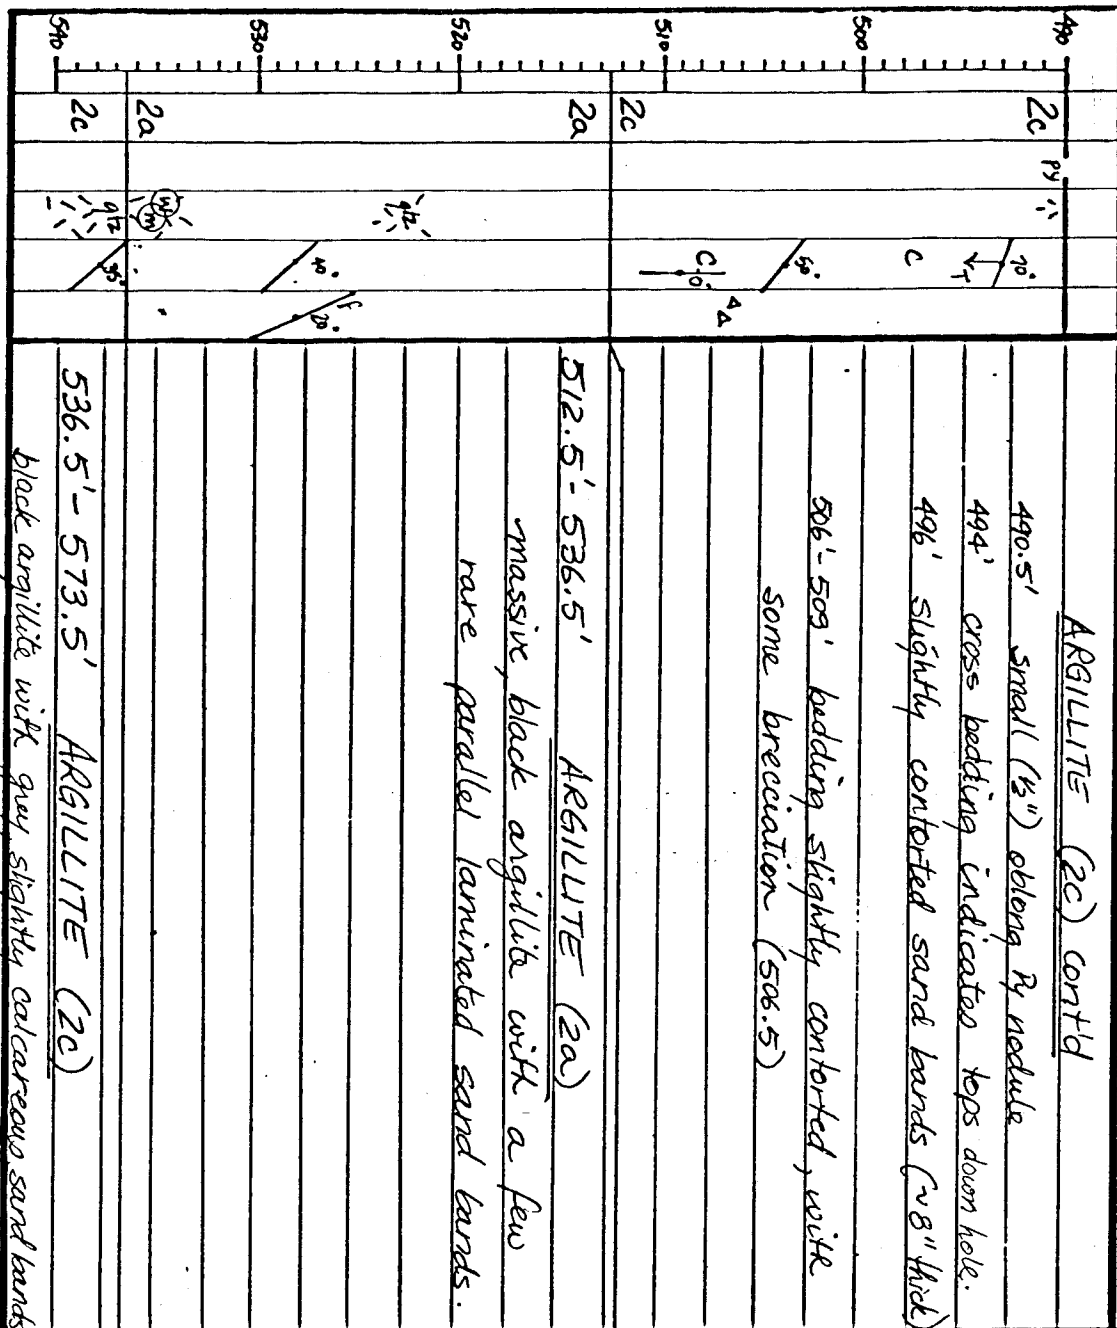 490
500
510
520
530
540
2c
2c
2a
2a
2c
PY
qtz
W
M
qtz
70°
T
C
50°
C 0°
40°
35°
f
20°
ARGILLITE (2c) cont'd
490.5' small (½") oblong Py nodule
494' cross bedding indicates tops down hole.
496' slightly contorted sand bands (~8" thick)
506'-509' bedding slightly contorted, with
some brecciation (506.5)
512.5'-536.5' ARGILLITE (2a)
massive, black argillite with a few
rare parallel laminated sand bands.
536.5'-573.5' ARGILLITE (2c)
black argillite with grey, slightly calcareous, sand bands